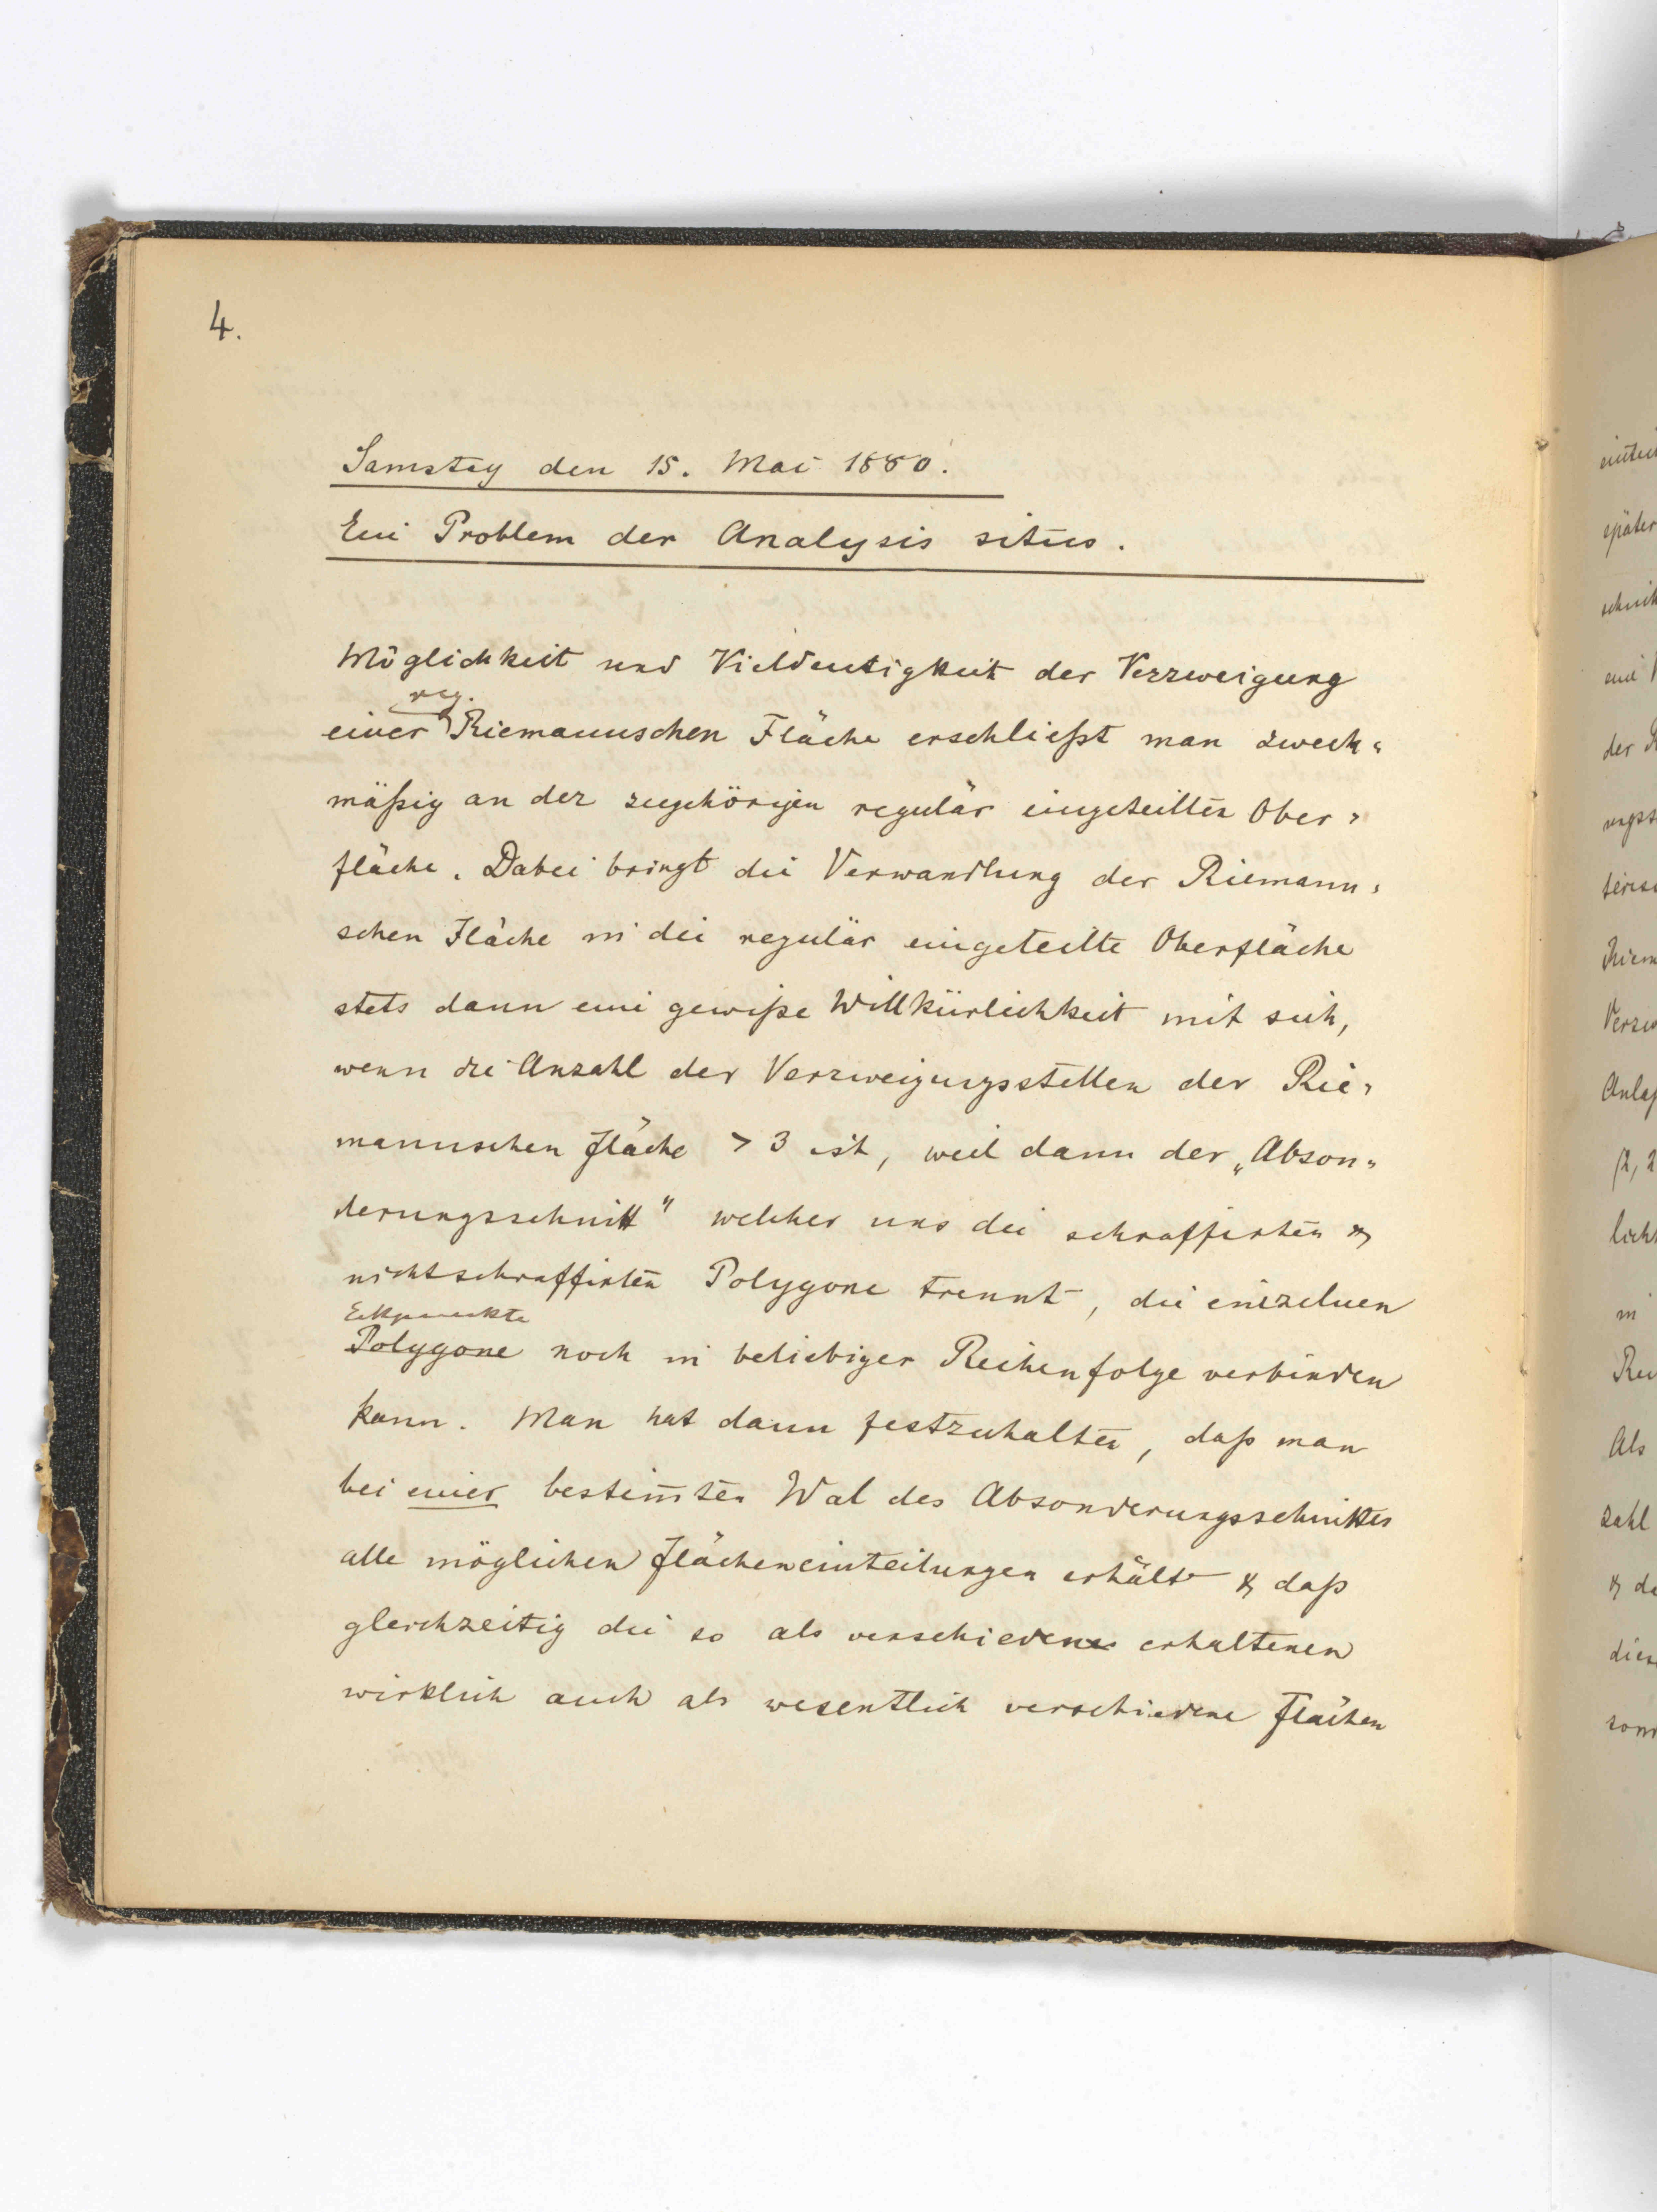 4.
Samstag den 15. Mai 1880.
Ein Problem der Analysis situs.
Möglichkeit und Vieldeutigkeit der Verzweigung
reg.
einer Riemannschen Fläche erschließt man zweck-
mäßig an der zugehörigen regulär eingeteilten Ober-
fläche. Dabei bringt die Verwandlung der Riemann-
schen Fläche in die regulär eingeteilte Oberfläche
stets dann eine gewiße Willkürlichkeit mit sich,
wenn die Anzahl der Verzweigungsstellen der Rie-
mannschen Fläche > 3 ist, weil dann der „Abson-
derungsschnitt" welcher uns die schraffirten &
nichtschraffirten Polygone trennt, die einzelnen
Eckpunkte
Polygone noch in beliebiger Reihenfolge verbinden
kann. Man hat dann festzuhalten, daß man
bei einer bestim̅ten Wal des Absonderungsschnittes
alle möglichen Flächeneinteilungen erhält & daß
gleichzeitig die so als verschiedene erhaltenen
wirklich auch als wesentlich verschiedene Flächen
später
der
Verzw
Als
zahl
& da